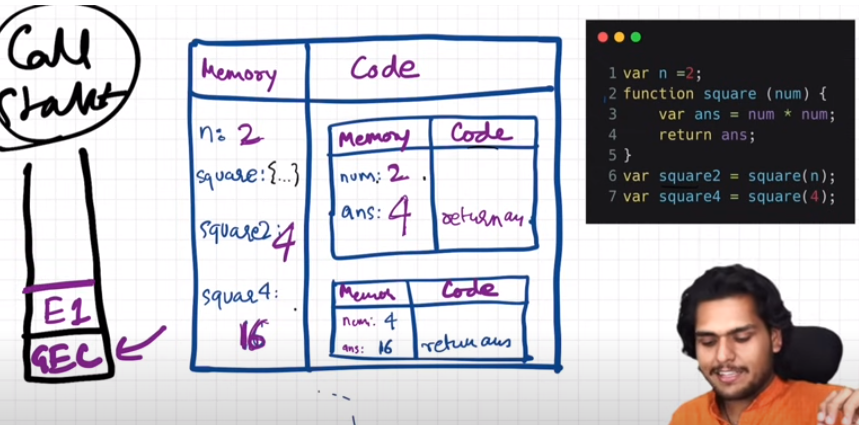 Call
Stakt
E1
GEC
Memory
Code
n: 2
square:{...}
square2:4
squar4:
16
Memory
Code
num: 2
ans: 4
return an
Memor
Code
num: 4
ans: 16
return ans
1 var n =2;
2 function square (num) {
3 var ans = num * num;
4 return ans;
5 }
6 var square2 = square(n);
7 var square4 = square(4);